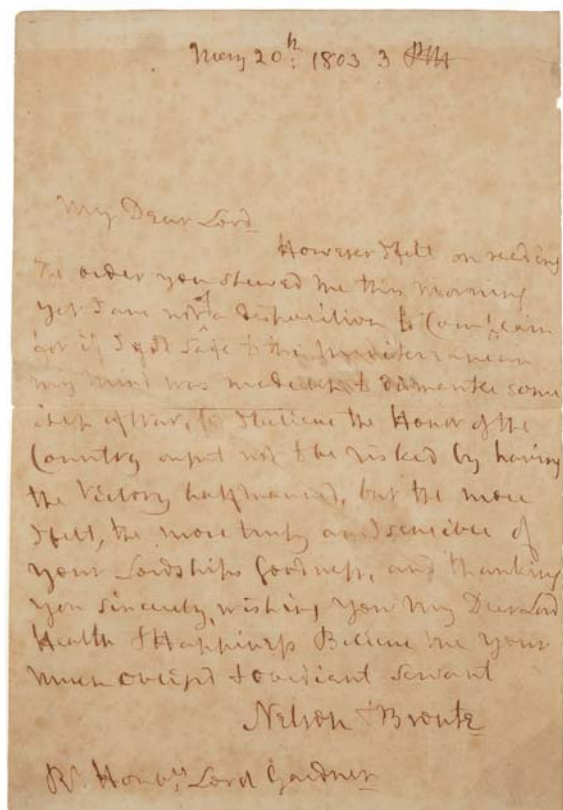 May 20th: 1803 3 PM
My Dear Lord
However I felt on reading
the order you shewed me this morning
yet I am not of a disposition to Complain
for if I got safe to the Mediterranean
my mind was made up to dismantle some
ship of War, for I believe the Honor of the
Country ought not to be risked by having
the Victory half manned, but the more
I felt, the more truly am I sensible of
your Lordships Goodness, and thanking
you sincerely, wishing you My Dear Lord
Health & Happiness Believe me your
much obliged & obedient servant
Nelson & Bronte
Rt. Honble. Lord Gardner